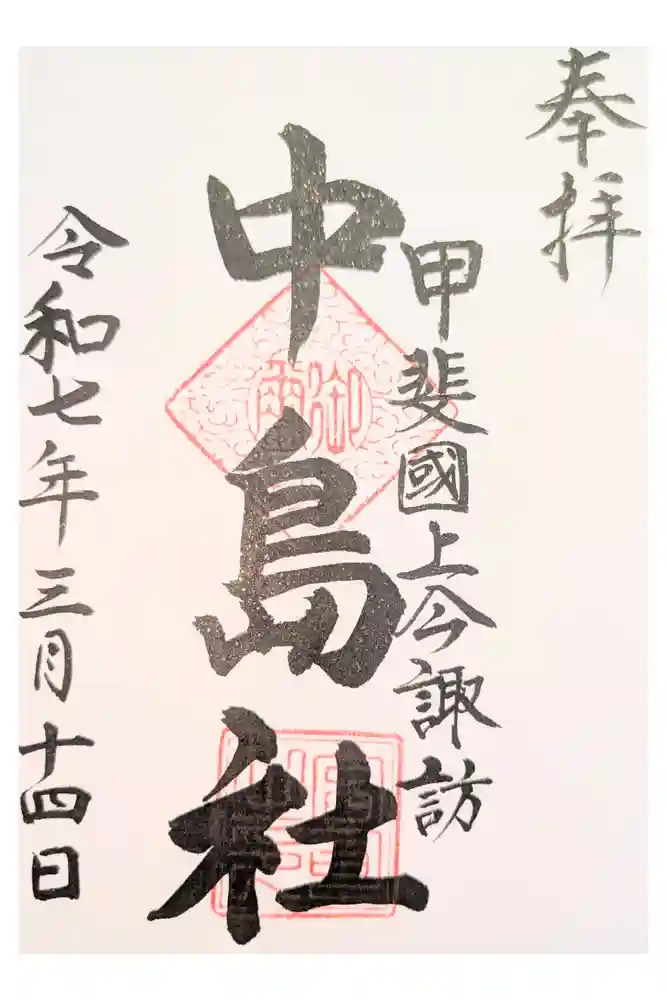 奉拝
甲斐國上今諏訪
中島社
令和七年三月十四日